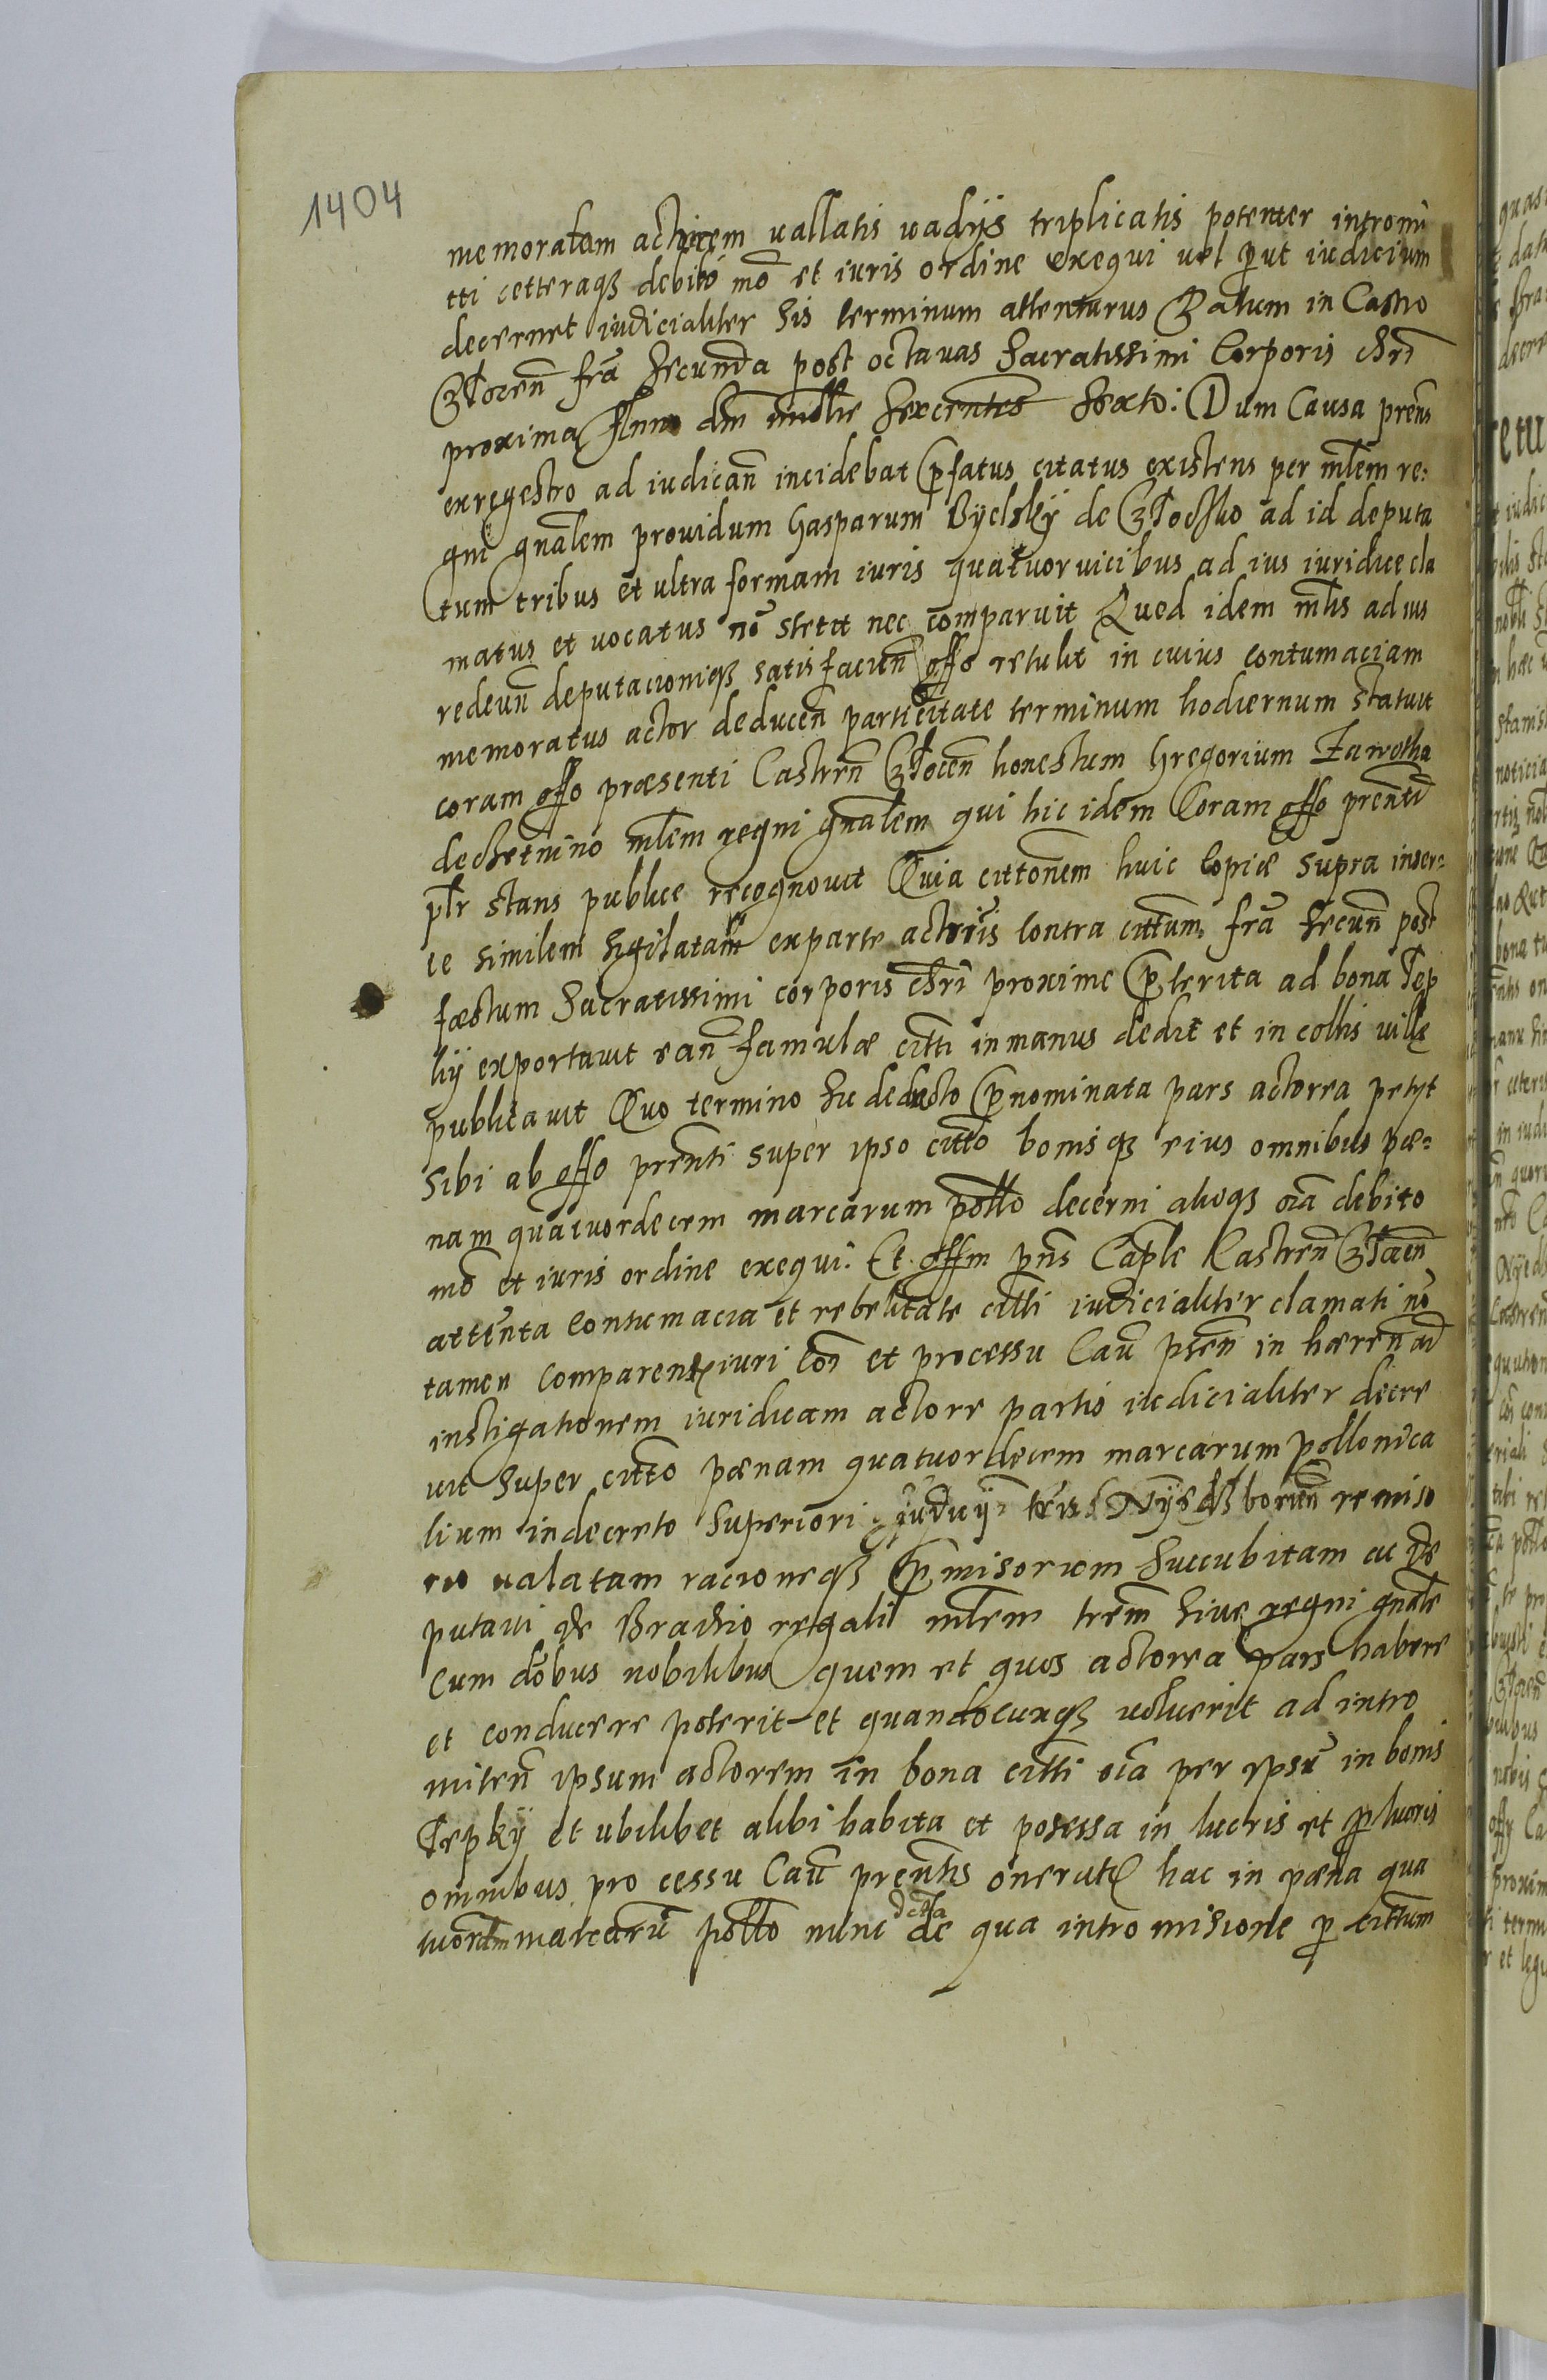 1404
memoratam actricem uallatis uadÿs triplicatis potenter intromi
tti cetteraqꝫ debito mo et iuris ordine exequi uel prout iudicium
decernet iudicialiter sis terminum attenturus Datum in Castro
fra secunda post octauas Sacratissimi Corporis chri
proxima Anno dni mille Sexcentes Sexto: Dum Causa prens
ex regestro ad iudican incidebat prefatus citatus existens per mlem re:
gni gnalem prouidum Gasparum Byelskÿ de ad id deputa
tum tribus et ultra formam iuris quatuor uicibus ad ius iuridice cla
matus et uocatus no stetit nec comparuit Quod idem mlis ad ius
redeun deputacioniqꝫ satisfacien offo retulit in cuius contumaciam
memoratus actor deducen parti citate terminum hodiernum statuit
coram offo præsenti Castren honestum Gregorium
de mlem regni gnalem qui hic idem Coram offo prenti
plr stans publice recognouit Quia cittonem huic Copiæ supra inser=
te similem sigilatam ex parte actoris Contra cittum fra secun post
fæstum Sacratissimi corporis chri proxime preterita ad bona Tep
kÿ exportauit ean famulæ citti in manus dedit et in collis uille
publicauit Quo termino sic deducto prenominata pars actorea petyt
sibi ab offo prenti super ipso citto bonisqꝫ eius omnibus pæ=
nam quatuordecem marcarum pollo decerni alioqꝫ oia debito
mo et iuris ordine exequi. Et offm pns Caple Castren
attenta Contumacia et rebelitate citti iudicialiter clamati no
tamen Comparen iuri con et processu Cau psen in hæren ad
instigationem iuridicam actore partis iudicialiter decre
uit super citto pænam quatuordecem marcarum pollonica
lium in decreto superiori iudicÿ remiso
ualatam racioneqꝫ premisorum succubitam ac de
putaui de Brachio regali mlem trem siue regni gnale
Cum dobus nobilibus quem et quos actorea pars habere
et conducere poterit et quandocunqꝫ uoluerit ad intro
miten ipsum actorem in bona citti oia per ipsu in bonis
Tepkÿ et ubilibet alibi habita et posessa in lucris et
omnibus pro cessu Cau prentis onerate hac in pæna qua
tuordm marcaru pollo nunc dcta de qua intromisione p cittum